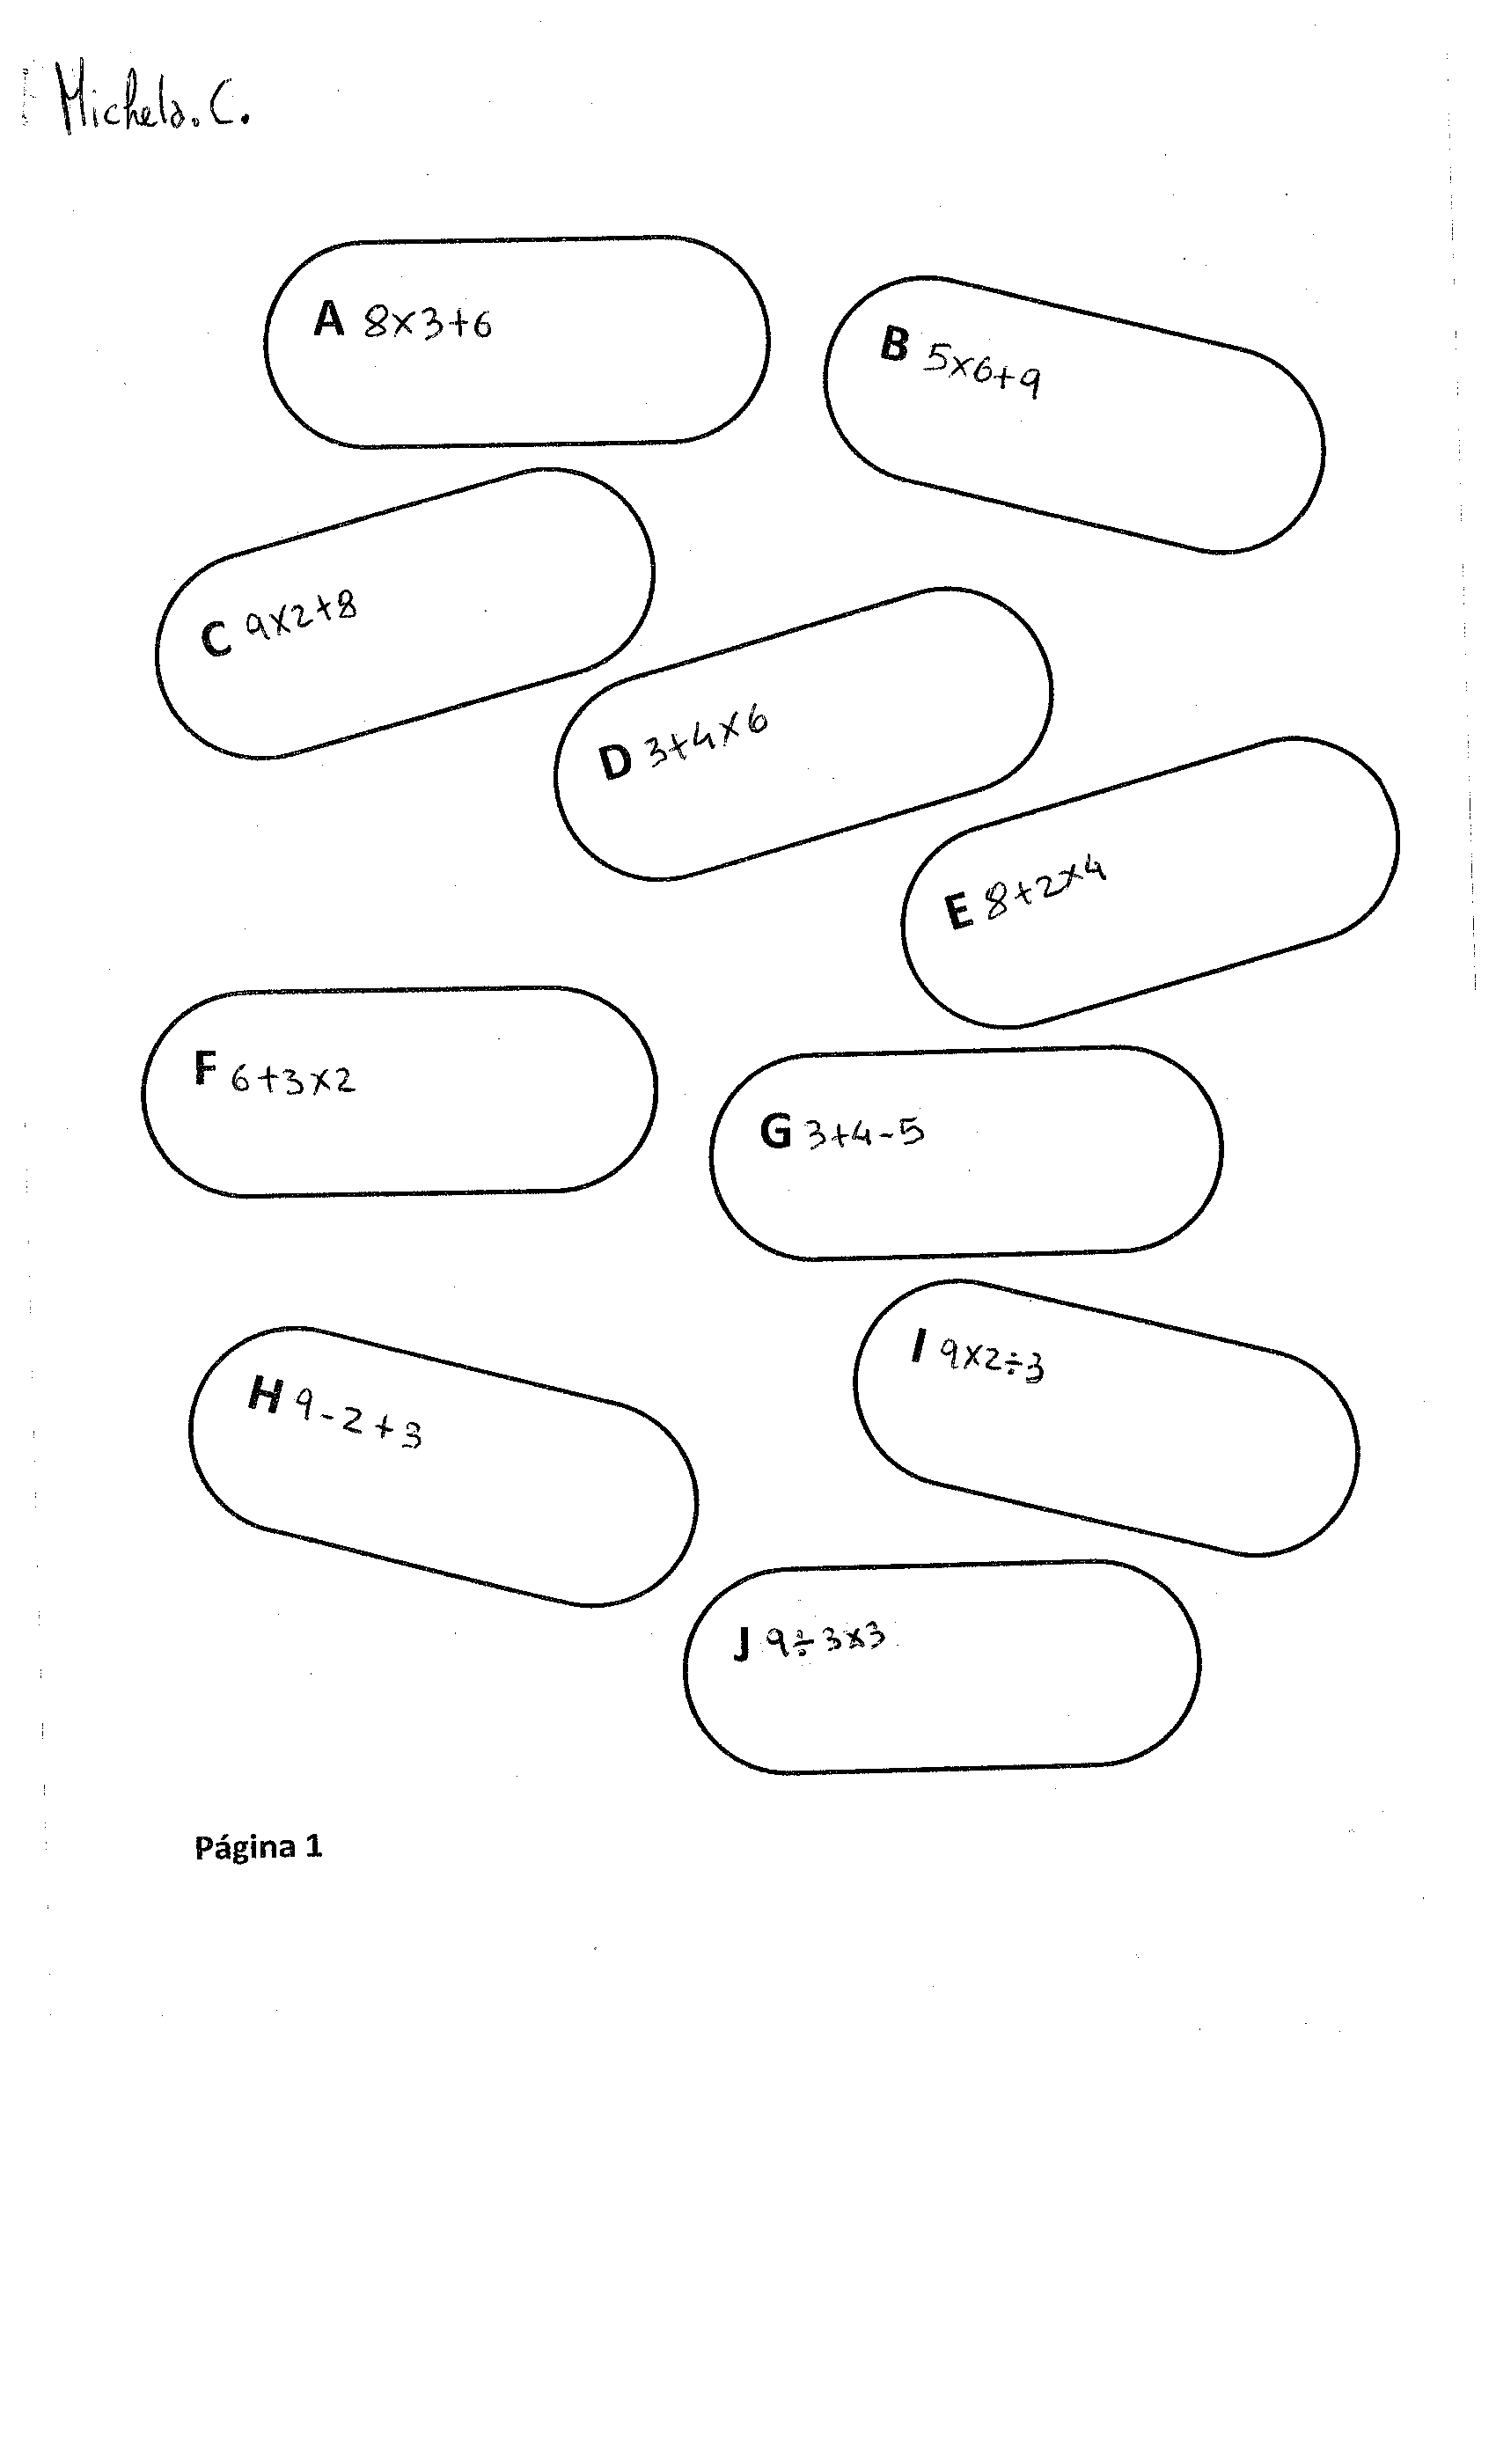 Michela.C.
A 8×3+6
B 5×6+9
C 9×2+8
D 3+4×6
E 8+2×4
F 6+3×2
G 3+4-5
H 9-2+3
I 9×2÷3
J 9÷3×3
Página 1